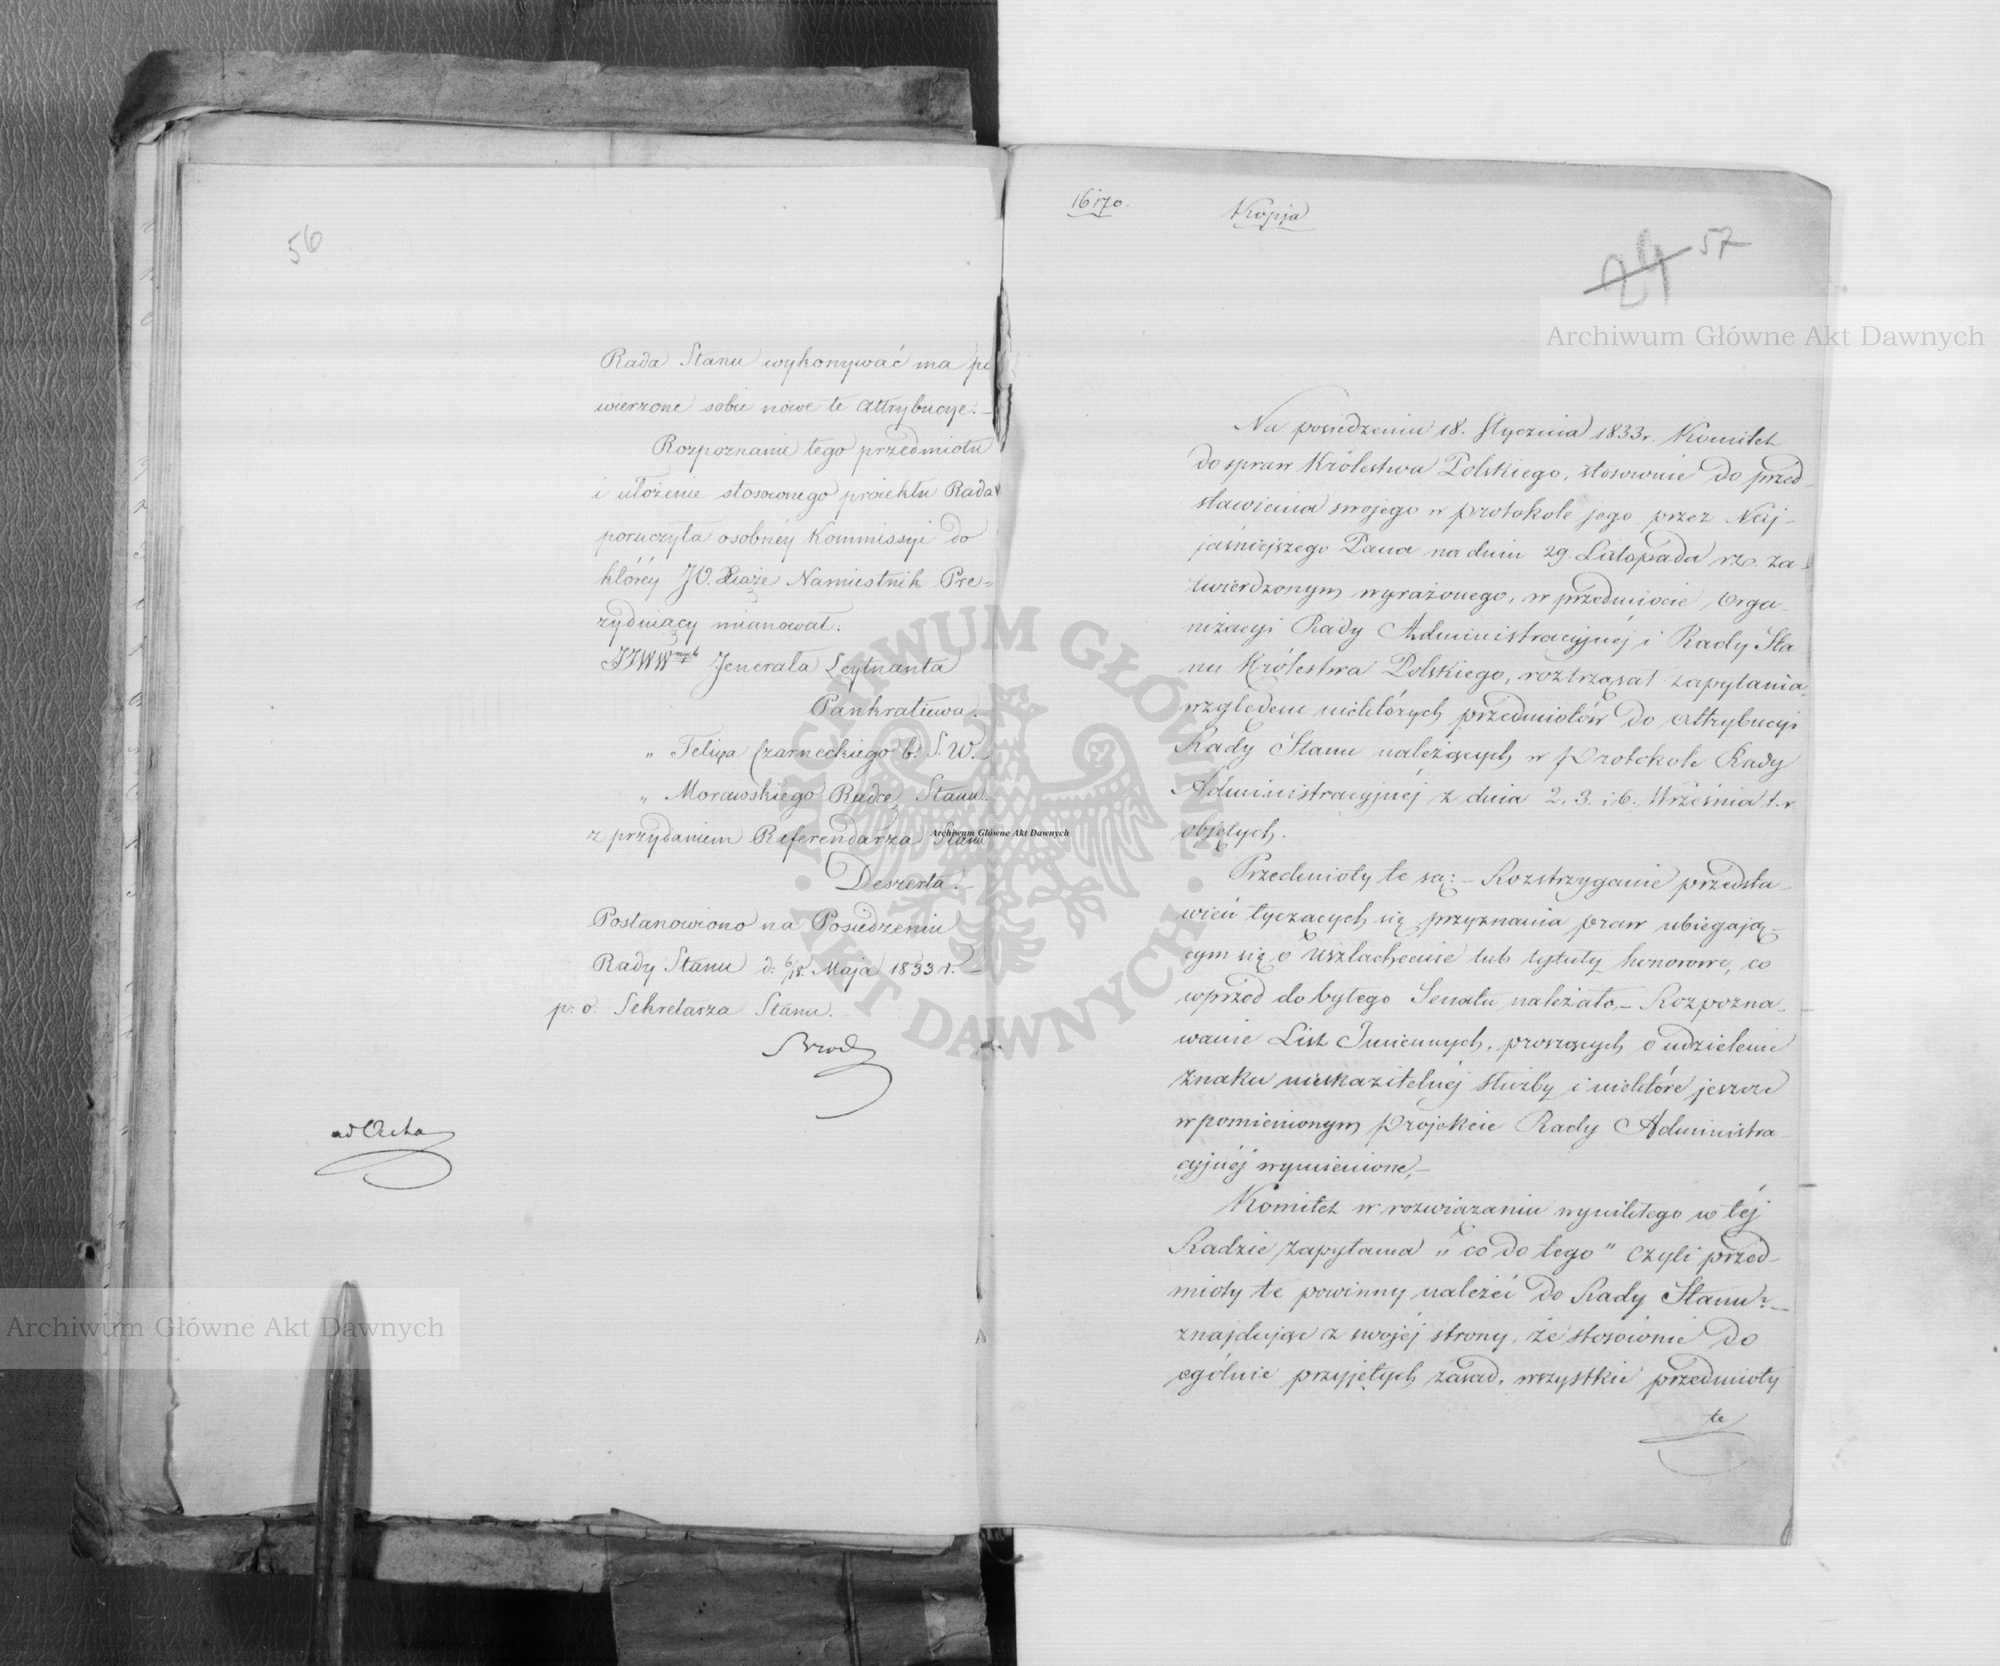 56
Rada Stanu wykonywać ma po
wierzone sobie nowe te Attrybucye.
Rozpoznanie tego przedmiotu
i ułożenie stosownego projektu Rada
poruczyła osobnéy Kommissyi do
któréy JO. Xiąże Namiestnik Pre=
zyduiący mianował:
JJWWnych Jenerała Leytnanta
Pankratiewa.
" Felixa Czarneckiego b. S. W.
" Morawskiego Radcę Stanu.
z przydaniem Referendarza Stanu
Deszerta.
Postanowiono na Posiedzeniu
Rady Stanu d: 6/18 Maja 1833 r.
p. o. Sekretarza Stanu.
ad Acta
1617o.
Kopja
24 57
Na posiedzeniu 18. Stycznia 1833r. Komitet
do spraw Królestwa Polskiego, stosownie do przed-
stawienia swojego w protokole jego przez Naj-
jaśniejszego Pana na dniu 29. Listopada rz. za-
twierdzonym wyrażonego, w przedmiocie Orga-
nizacyi Rady Administracyjnéj i Rady Sta
nu Królestwa Polskiego, roztrząsał zapytania
względem niektórych przedmiotów do Attrybucyi
Rady Stanu należących w protokole Rady
Administracyjnéj z dnia 2. 3. i 6. Września t. r.
objętych.
Przedmioty te są: - Rozstrzyganie przedsta-
wień tyczących się przyznania praw ubiegają-
cym się o uszlachcenie lub tytuły honorowe, co
wprzód do byłego Senatu należało, - Rozpozna-
wanie List Imiennych, proszących o udzielenie
znaku nieskazitelnéj służby i niektóre jeszcze
w pomienionym projekcie Rady Administra-
cyjnéj wymienione,-
Komitet w rozwiązaniu wynikłego w téj
Radzie zapytania „co do tego" czyli przed-
mioty te powinny należéć do Rady Stanu?-
znajdując z swojéj strony, że stosownie do
ogólnie przyjętych zasad, wszystkie przedmioty
te
Archiwum Główne Akt Dawnych
Archiwum Główne Akt Dawnych
Archiwum Główne Akt Dawnych
ARCHIWUM GŁÓWNE
· AKT DAWNYCH ·